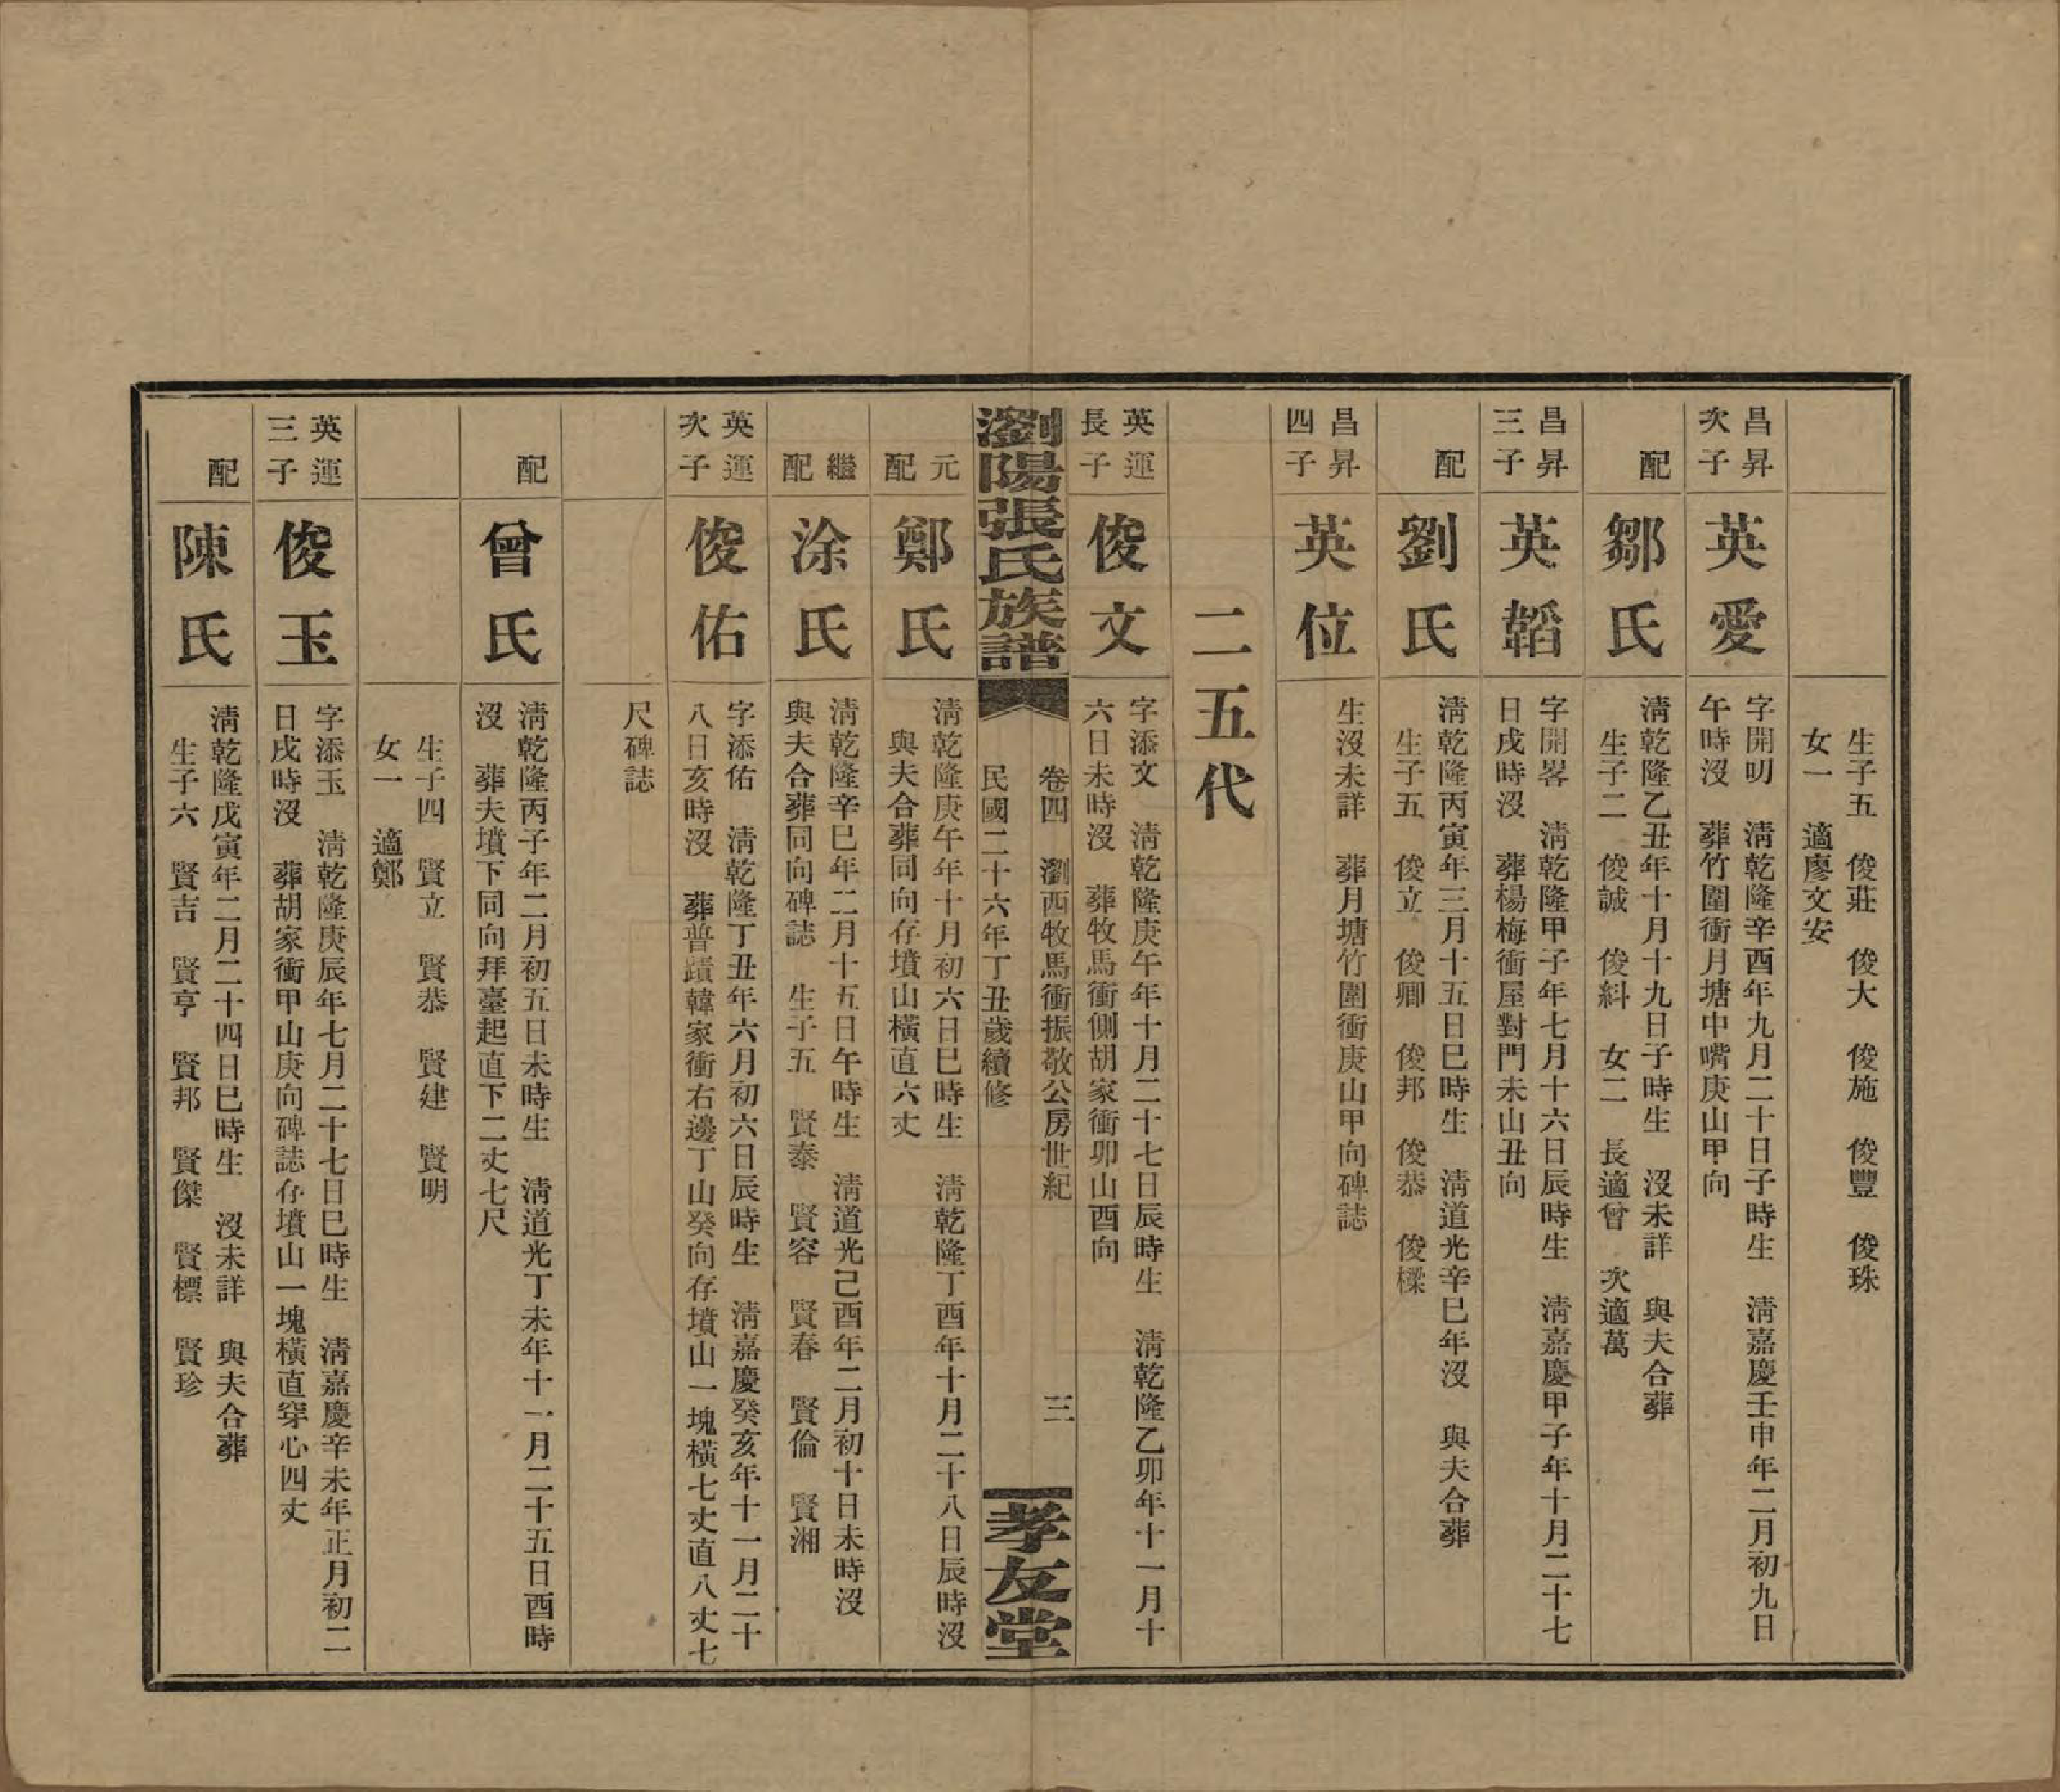 生子五　俊莊　俊大　俊施　俊豐　俊珠
女一　適廖文安
昌昇
次子
英愛
字開叨　清乾隆辛酉年九月二十日子時生　清嘉慶壬申年二月初九日
午時沒　葬竹圍衝月塘中嘴庚山甲向
配
鄒氏
清乾隆乙丑年十月十九日子時生　沒未詳　與夫合葬
生子二　俊誠　俊紏　女二　長適曾　次適萬
昌昇
三子
英韜
字開畧　清乾隆甲子年七月十六日辰時生　清嘉慶甲子年十月二十七
日戌時沒　葬楊梅衝屋對門未山丑向
配
劉氏
清乾隆丙寅年三月十五日巳時生　清道光辛巳年沒　與夫合葬
生子五　俊立　俊卿　俊邦　俊恭　俊樑
昌昇
四子
英位
生沒未詳　葬月塘竹圍衝庚山甲向碑誌
二五代
英運
長子
俊文
字添文　清乾隆庚午年十月二十七日辰時生　清乾隆乙卯年十一月十
六日未時沒　葬牧馬衝側胡家衝卯山酉向
瀏陽張氏族譜
卷四　瀏西牧馬衝振敬公房世紀　三
民國二十六年丁丑歲續修
孝友堂
元
配
鄭氏
清乾隆庚午年十月初六日巳時生　清乾隆丁酉年十月二十八日辰時沒
與夫合葬同向存墳山橫直六丈
繼
配
涂氏
清乾隆辛巳年二月十五日午時生　清道光己酉年二月初十日未時沒
與夫合葬同向碑誌　生子五　賢泰　賢容　賢春　賢倫　賢湘
英運
次子
俊佑
字添佑　清乾隆丁丑年六月初六日辰時生　清嘉慶癸亥年十一月二十
八日亥時沒　葬普蹟韓家衝右邊丁山癸向存墳山一塊橫七丈直八丈七
尺碑誌
配
曾氏
清乾隆丙子年二月初五日未時生　清道光丁未年十一月二十五日酉時
沒　葬夫墳下同向拜臺起直下二丈七尺
生子四　賢立　賢恭　賢建　賢明
女一　適鄭
英運
三子
俊玉
字添玉　清乾隆庚辰年七月二十七日巳時生　清嘉慶辛未年正月初二
日戌時沒　葬胡家衝甲山庚向碑誌存墳山一塊橫直穿心四丈
配
陳氏
清乾隆戊寅年二月二十四日巳時生　沒未詳　與夫合葬
生子六　賢吉　賢亨　賢邦　賢傑　賢標　賢珍